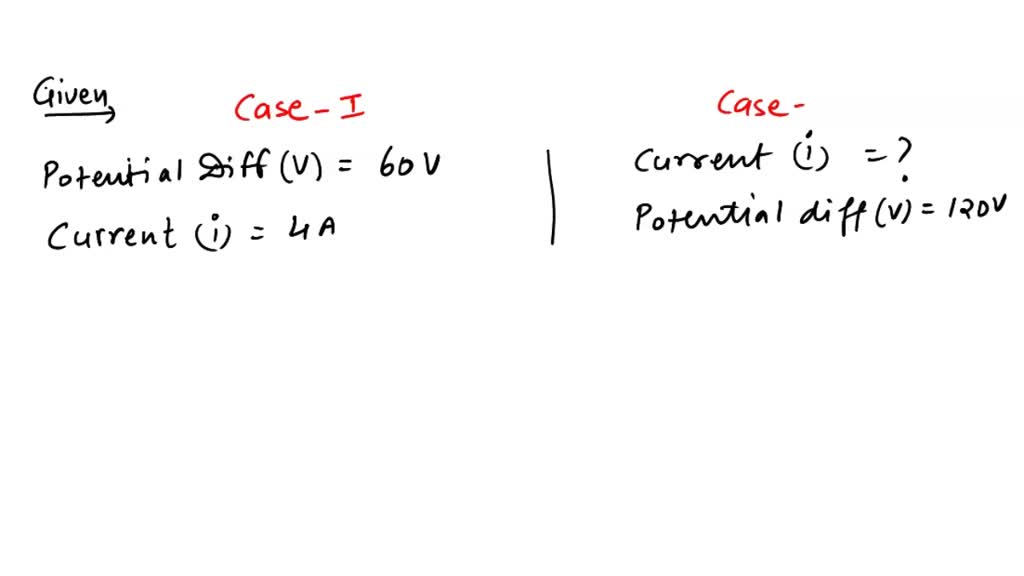 Given
Case - I
Potential Diff (V) = 60 V
Current (i) = 4 A
Case -
Current (i) = ?
Potential diff (V) = 120V